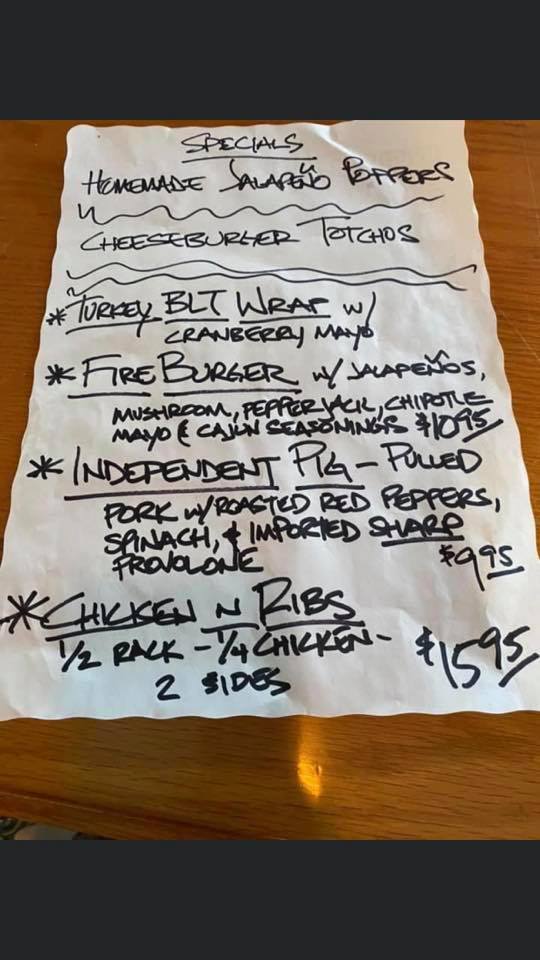 SPECIALS
HOMEMADE JALAPEÑO POPPERS
CHEESEBURGER TOTCHOS
* TURKEY BLT WRAP W/
CRANBERRY MAYO
* FIRE BURGER W/ JALAPEÑOS,
MUSHROOM, PEPPER JACK, CHIPOTLE
MAYO & CAJUN SEASONINGS $10.95
* INDEPENDENT PIG - PULLED
PORK W/ ROASTED RED PEPPERS,
SPINACH, & IMPORTED SHARP
PROVOLONE $9.95
* CHICKEN N RIBS
1/2 RACK - 1/4 CHICKEN - $15.95
2 SIDES